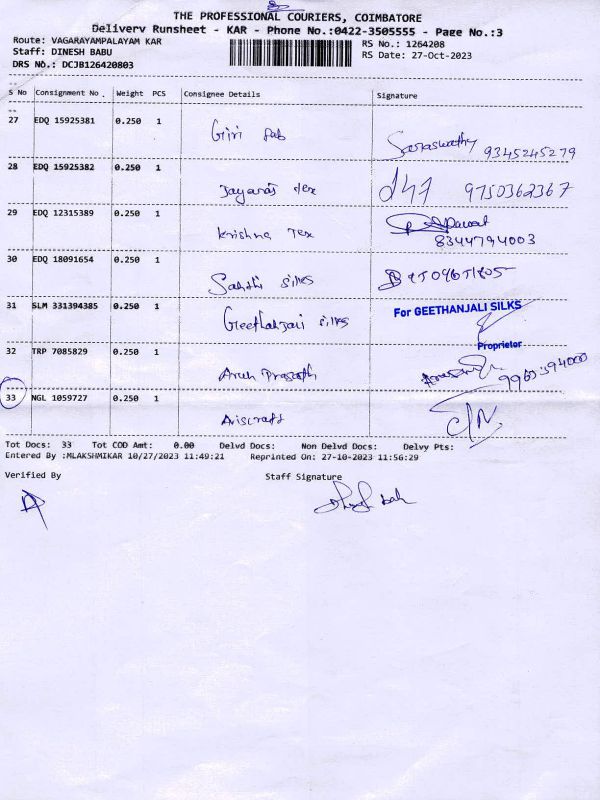 THE PROFESSIONAL COURIERS, COIMBATORE
Delivery Runsheet - KAR - Phone No.:0422-3505555 - Page No.:3
Route: VAGARAYAMPALAYAM KAR
RS No.: 1264208
Staff: DINESH BABU
RS Date: 27-Oct-2023
DRS No.: DCJB126420803
S No Consignment No. Weight PCS Consignee Details Signature
27 EDQ 15925381 0.250 1 Giri fab Saraswathy 9345245279
28 EDQ 15925382 0.250 1 Jayaras tex 9750362367
29 EDQ 12315389 0.250 1 Krishna Tex
8344794003
30 EDQ 18091654 0.250 1 Sakthi silks
31 SLM 331394385 0.250 1 Geethanjali silks For GEETHANJALI SILKS
Proprietor
32 TRP 7085829 0.250 1 Arun Prasath
33 NGL 1059727 0.250 1
Tot Docs: 33 Tot COD Amt: 0.00 Delvd Docs: Non Delvd Docs: Delvy Pts:
Entered By :MLAKSHMIKAR 10/27/2023 11:49:21 Reprinted On: 27-10-2023 11:56:29
Verified By Staff Signature